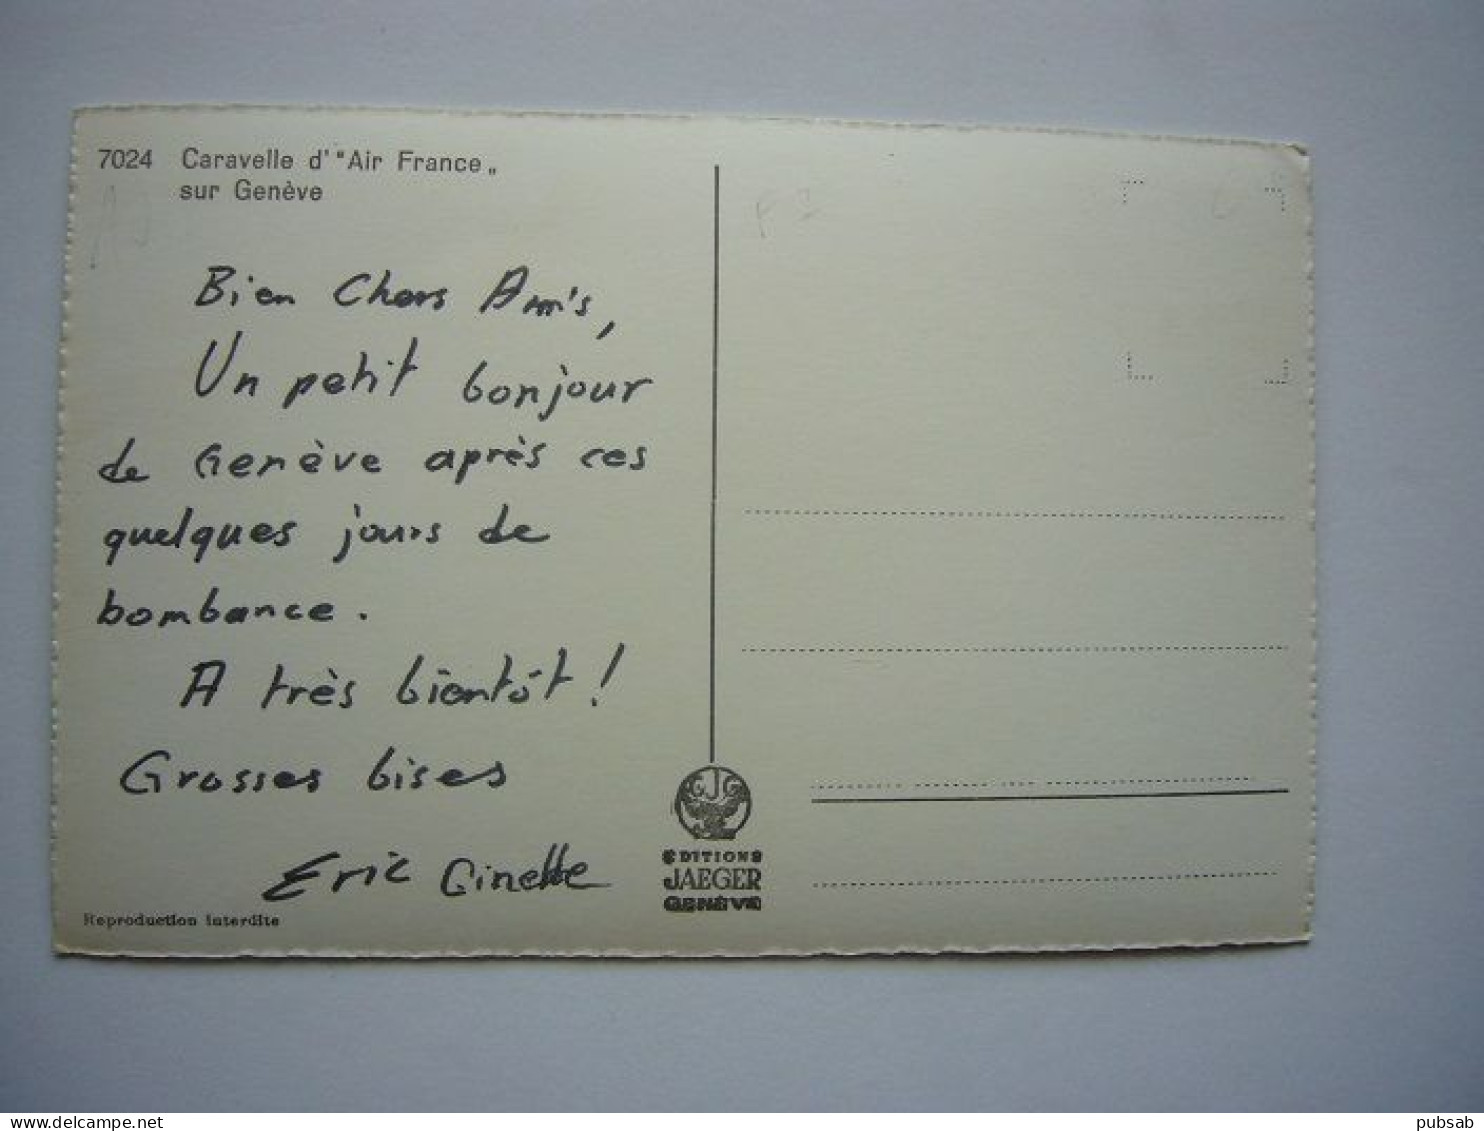 7024 Caravelle d' "Air France„
sur Genève
F 2
Bien Chers Amis,
Un petit bonjour
de Genève après ces
quelques jours de
bombance.
A très bientôt !
Grosses bises
Eric Ginette
CJG
EDITIONS
JAEGER
GENÈVE
Reproduction interdite
delcampe.net
pubsab